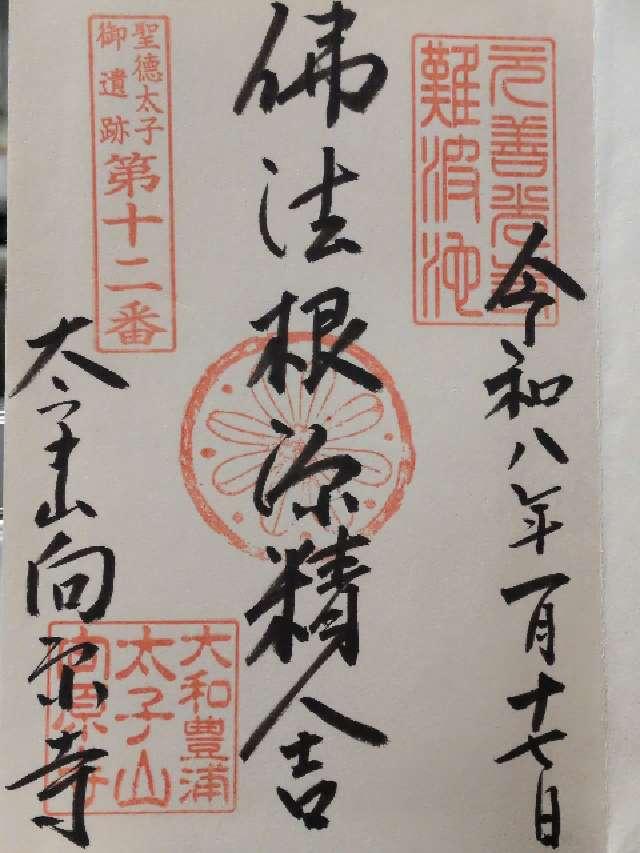 元善光寺
難波池
令和八年一月十七日
佛法根源精舎
聖徳太子
御遺跡
第十二番
太子山向原寺
大和豊浦
太子山
向原寺